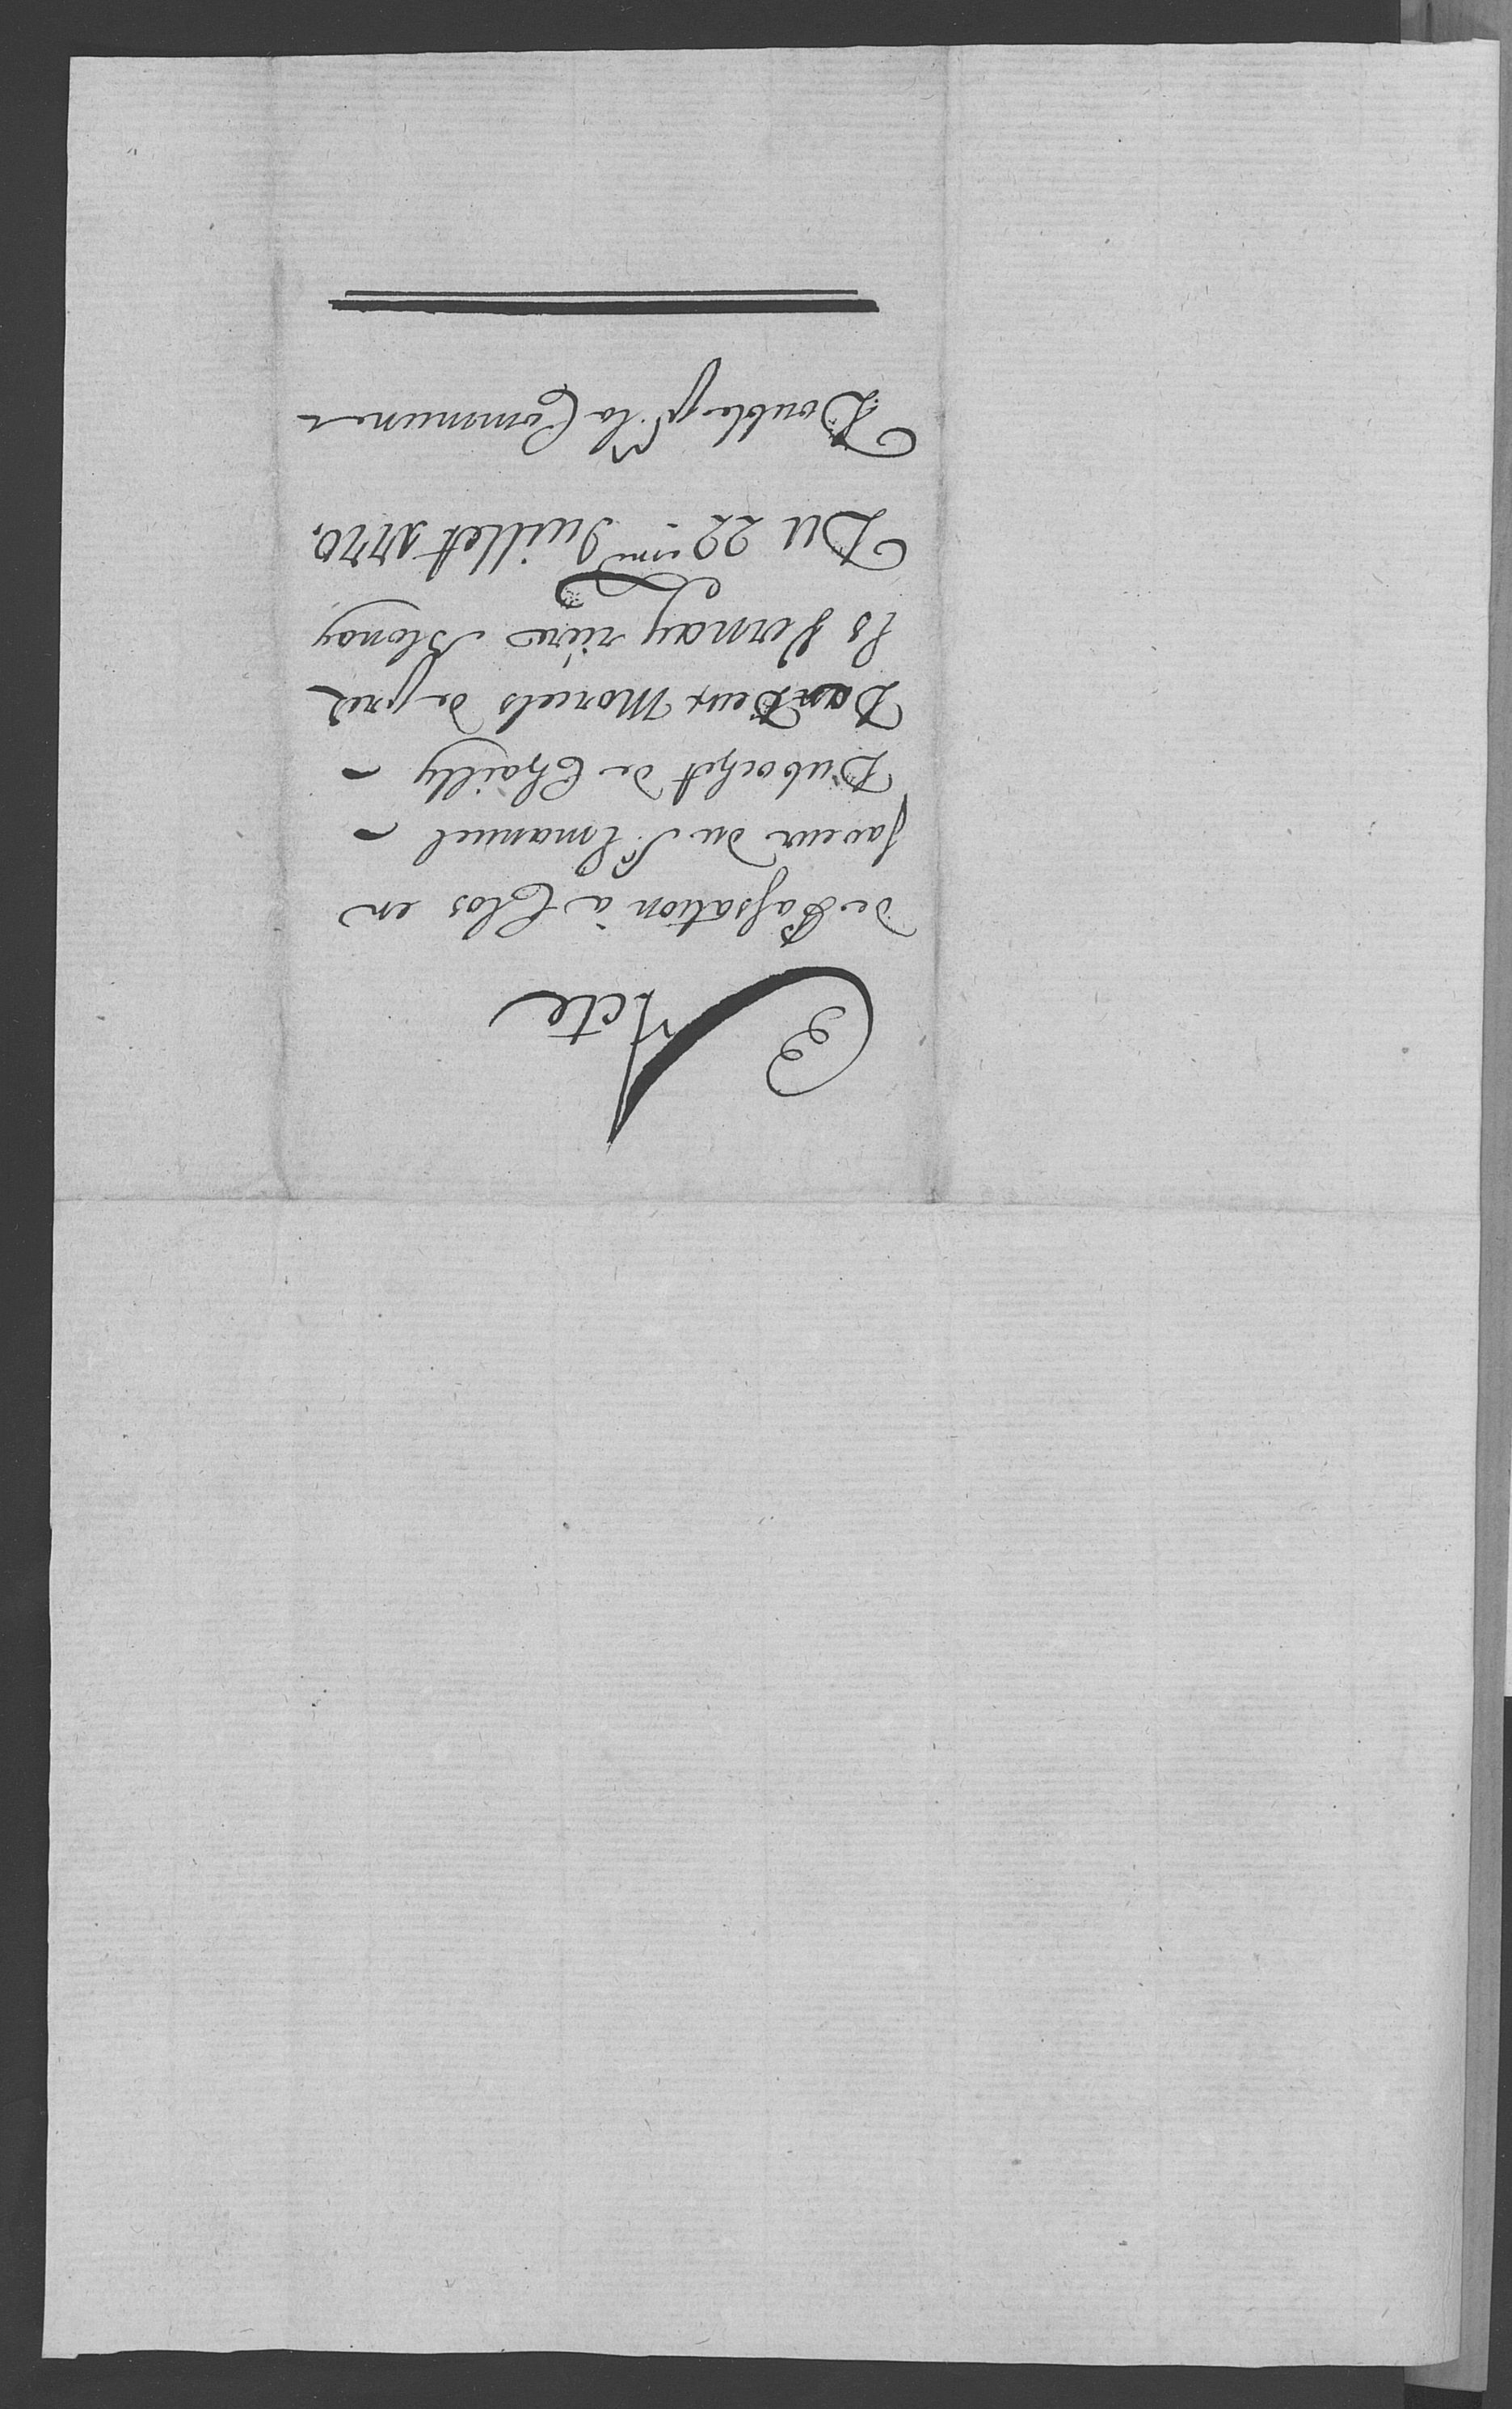 Acte
de Passation à Clos en
faveur du S.r Emanuel -
Dubochet de Chailly -
Dan Deux Morcels de prel
Es Vernay riére Blonay
DU 22.me Juillet 1770.
Double p.r la Commune